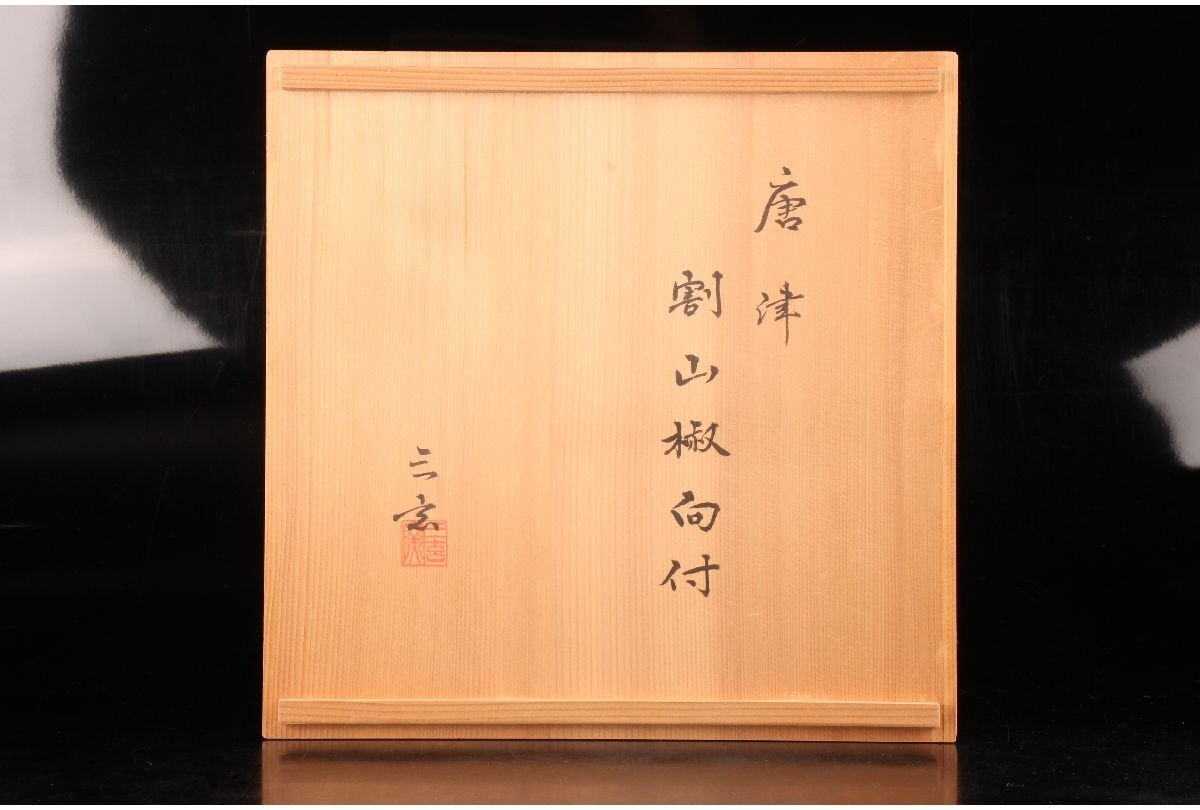 唐津
割山椒向付
三玄